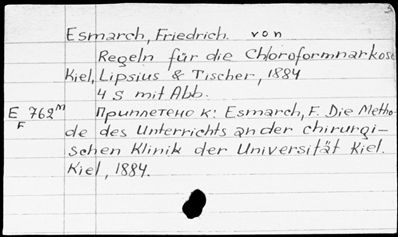 Esmarch, Friedrich. von
Regeln für die Chloroformnarkose
Kiel, Lipsius & Tischer, 1884
4 S mit Abb.
E 762ᵐ Приплетено к: Esmarch, F. Die Metho-
F de des Unterrichts an der chirurgi-
schen Klinik der Universität Kiel.
Kiel, 1884.